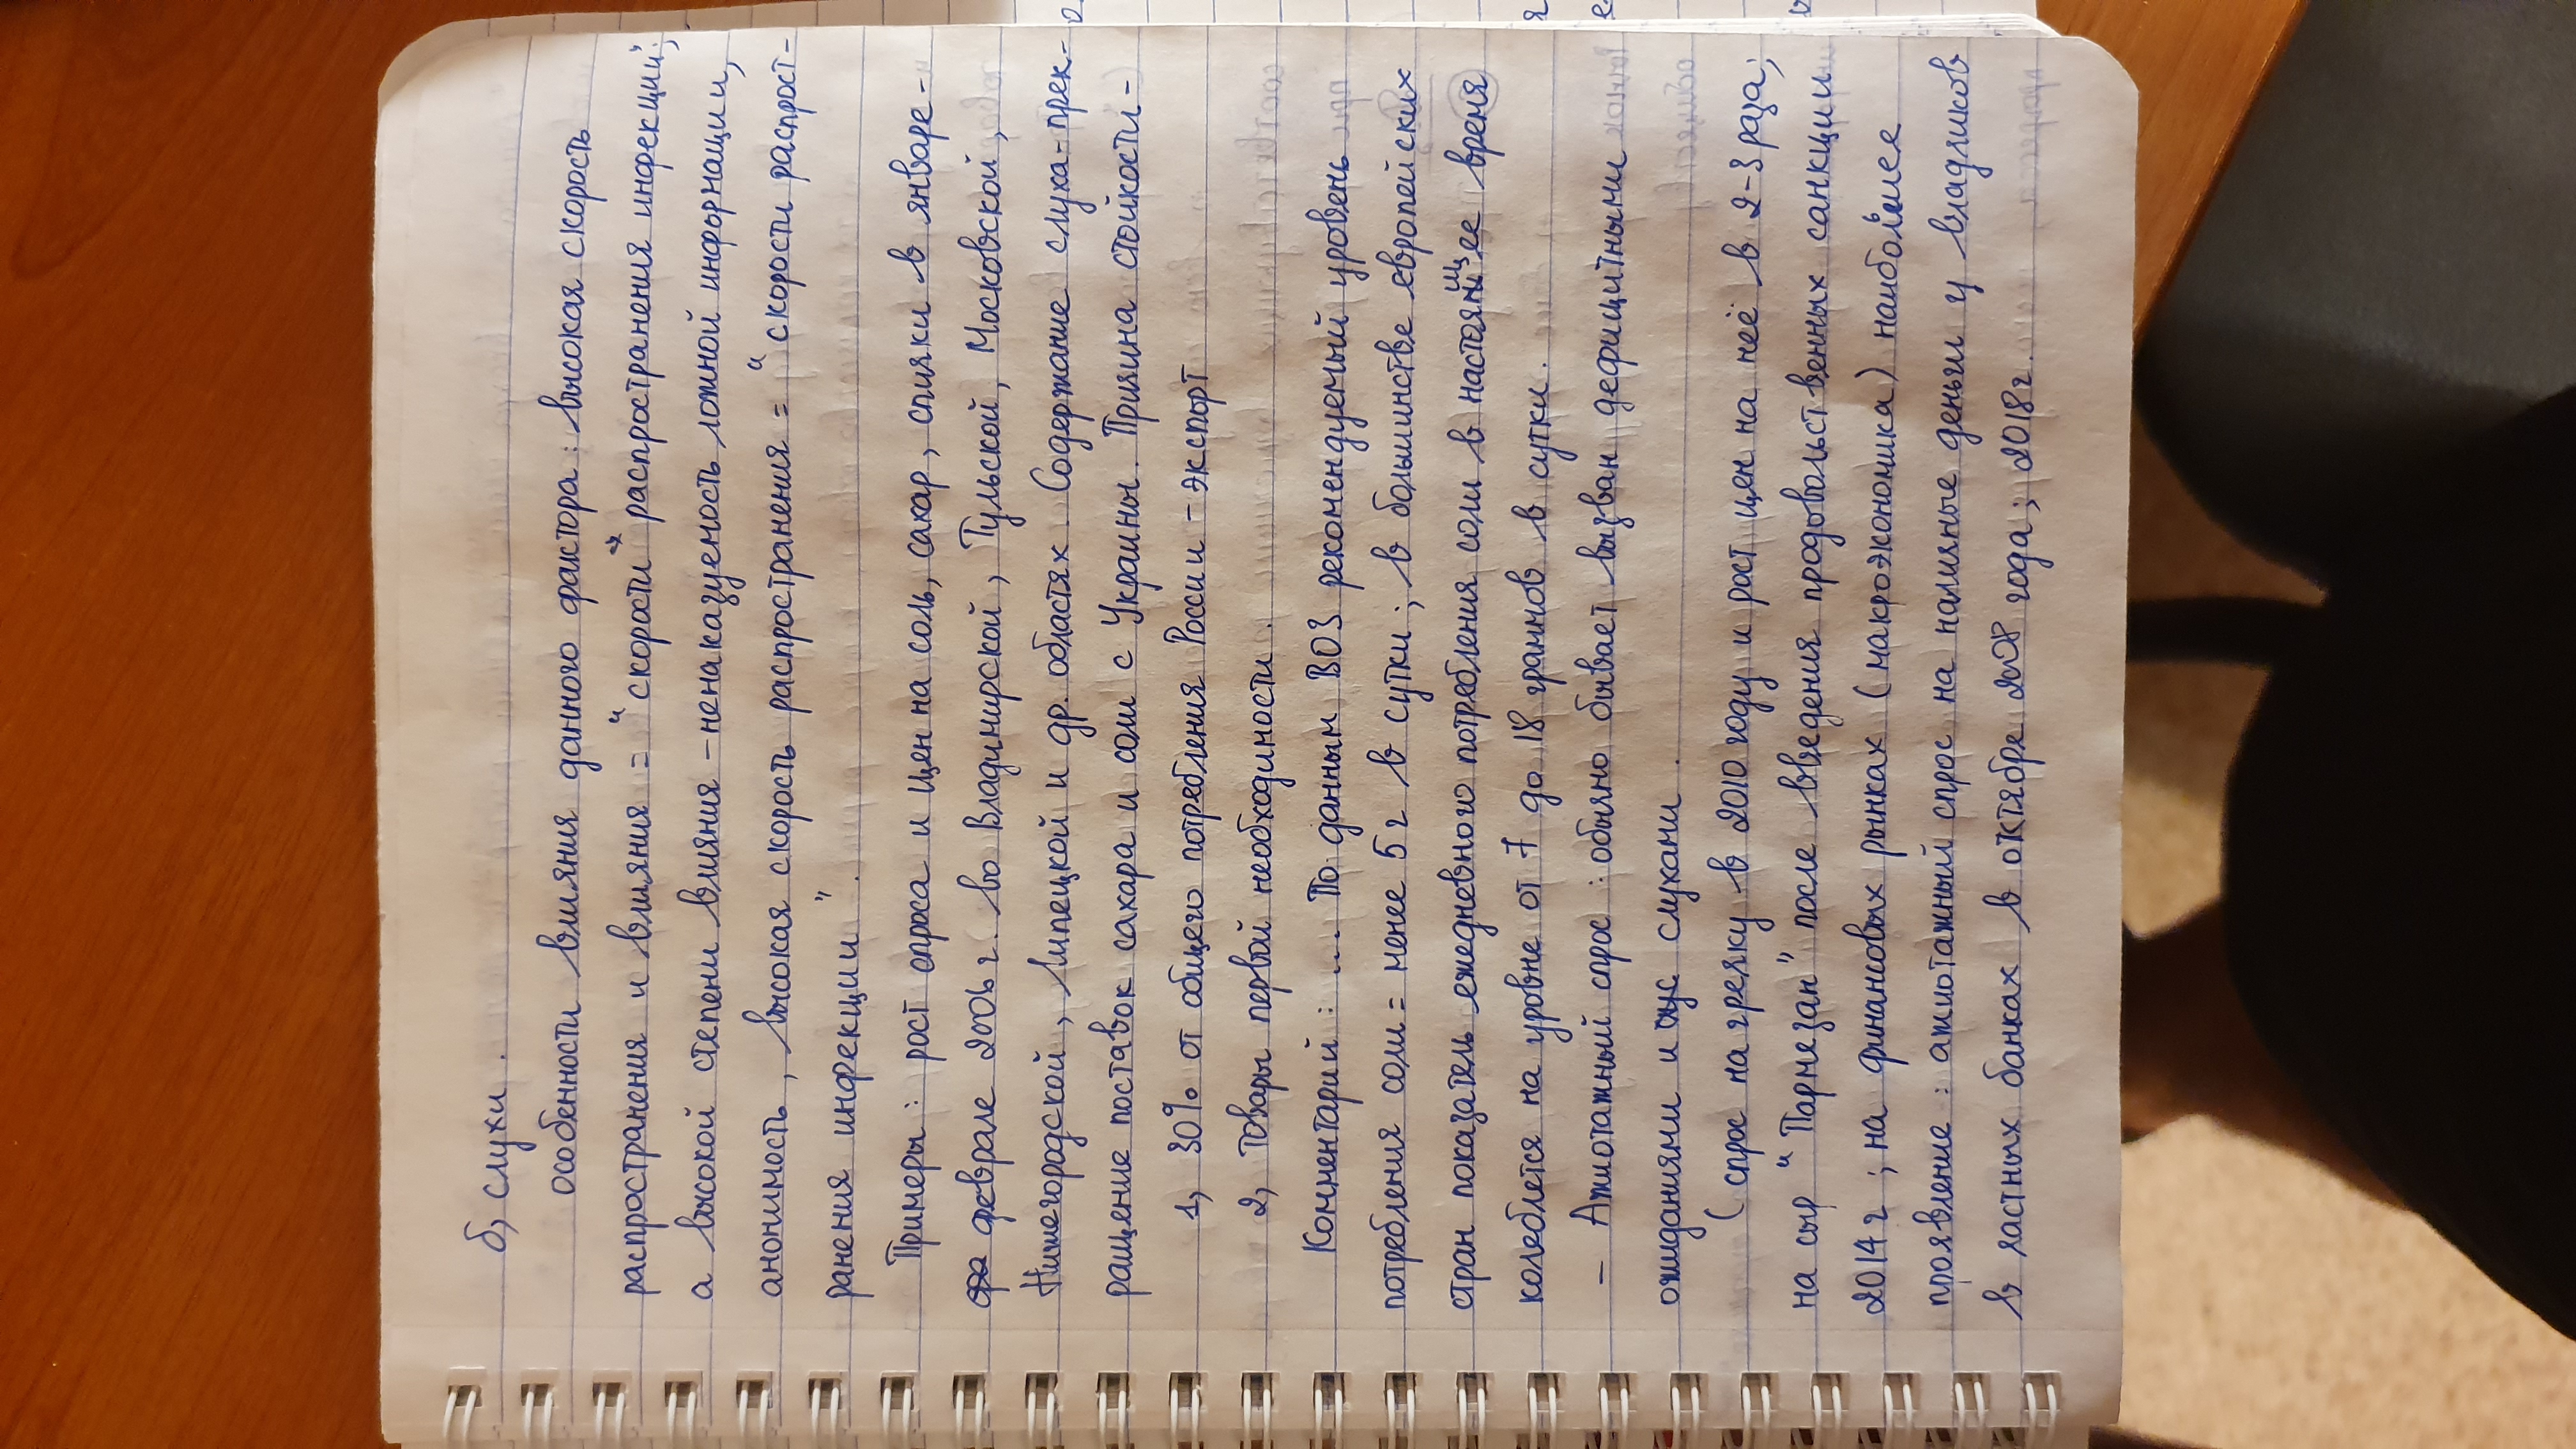 б, слухи .
особенности влияния данного фактора : высокая скорость
распространения и влияния = "скорости" распространения инфекции";
а высокой степени влияния – ненаказуемость ложной информации,
анонимость, высокая скорость распространения = "скорости распрост-
ранения инфекции".
Примеры : рост спроса и цен на соль, сахар, спички в январе-
феврале 2006 г. во Владимирской, Тульской, Московской,
Нижегородской, Липецкой и др. областях. Содержание слуха - прек-
ращение поставок сахара и соли с Украины. Причина стойкости -
1, 30% от общего потребления России – экспорт
2, товары первой необходимости .
Комментарий : ... По данным ВОЗ рекомендуемый уровень
потребления соли = менее 5 г в сутки ; в большинстве европейских
стран показатель ежедневного потребления соли в настоящее время
колеблется на уровне от 7 до 18 граммов в сутки .
– Ажиотажный спрос : обычно бывает вызван дефицитными
ожиданиями и слухами .
( спрос на гречку в 2010 году и рост цен на неё в 2-3 раза;
на сыр "Пармезан" после введения продовольственных санкции
2014 г ; на финансовых рынках ( макроэкономика ) наибольшее
проявление : ажиотажный спрос на наличные деньги у вкладчиков
в частных банках в октябре 2008 года ; 2018 г.